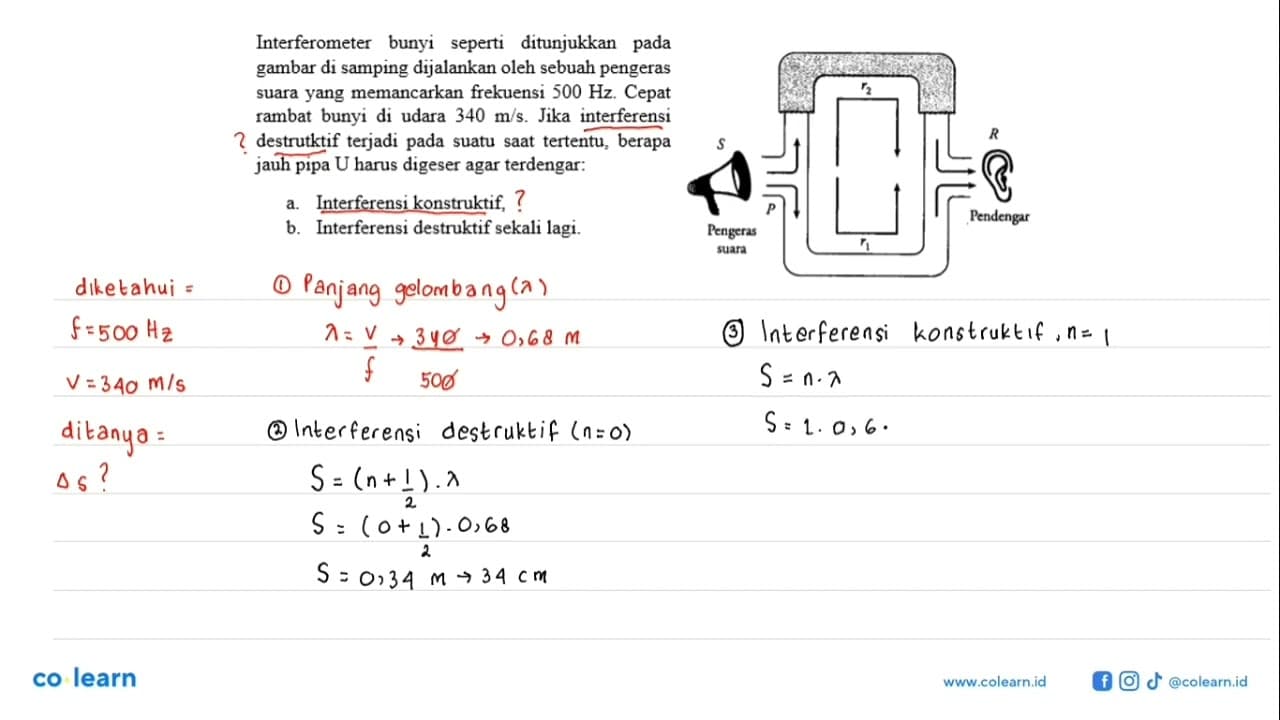 Interferometer bunyi seperti ditunjukkan pada
gambar di samping dijalankan oleh sebuah pengeras
suara yang memancarkan frekuensi 500 Hz. Cepat
rambat bunyi di udara 340 m/s. Jika interferensi
? destrutktif terjadi pada suatu saat tertentu, berapa
jauh pipa U harus digeser agar terdengar:
a. Interferensi konstruktif, ?
b. Interferensi destruktif sekali lagi.
r₂
S
R
P
Pengeras
suara
r₁
Pendengar
diketahui =
f = 500 Hz
V = 340 m/s
ditanya =
Δs ?
① Panjang gelombang (λ)
λ = V/f → 340/500 → 0,68 m
② Interferensi destruktif (n=0)
S = (n + 1/2) . λ
S = (0 + 1/2) . 0,68
S = 0,34 m → 34 cm
③ Interferensi konstruktif , n = 1
S = n . λ
S = 1 . 0,6.
co learn
www.colearn.id
@colearn.id